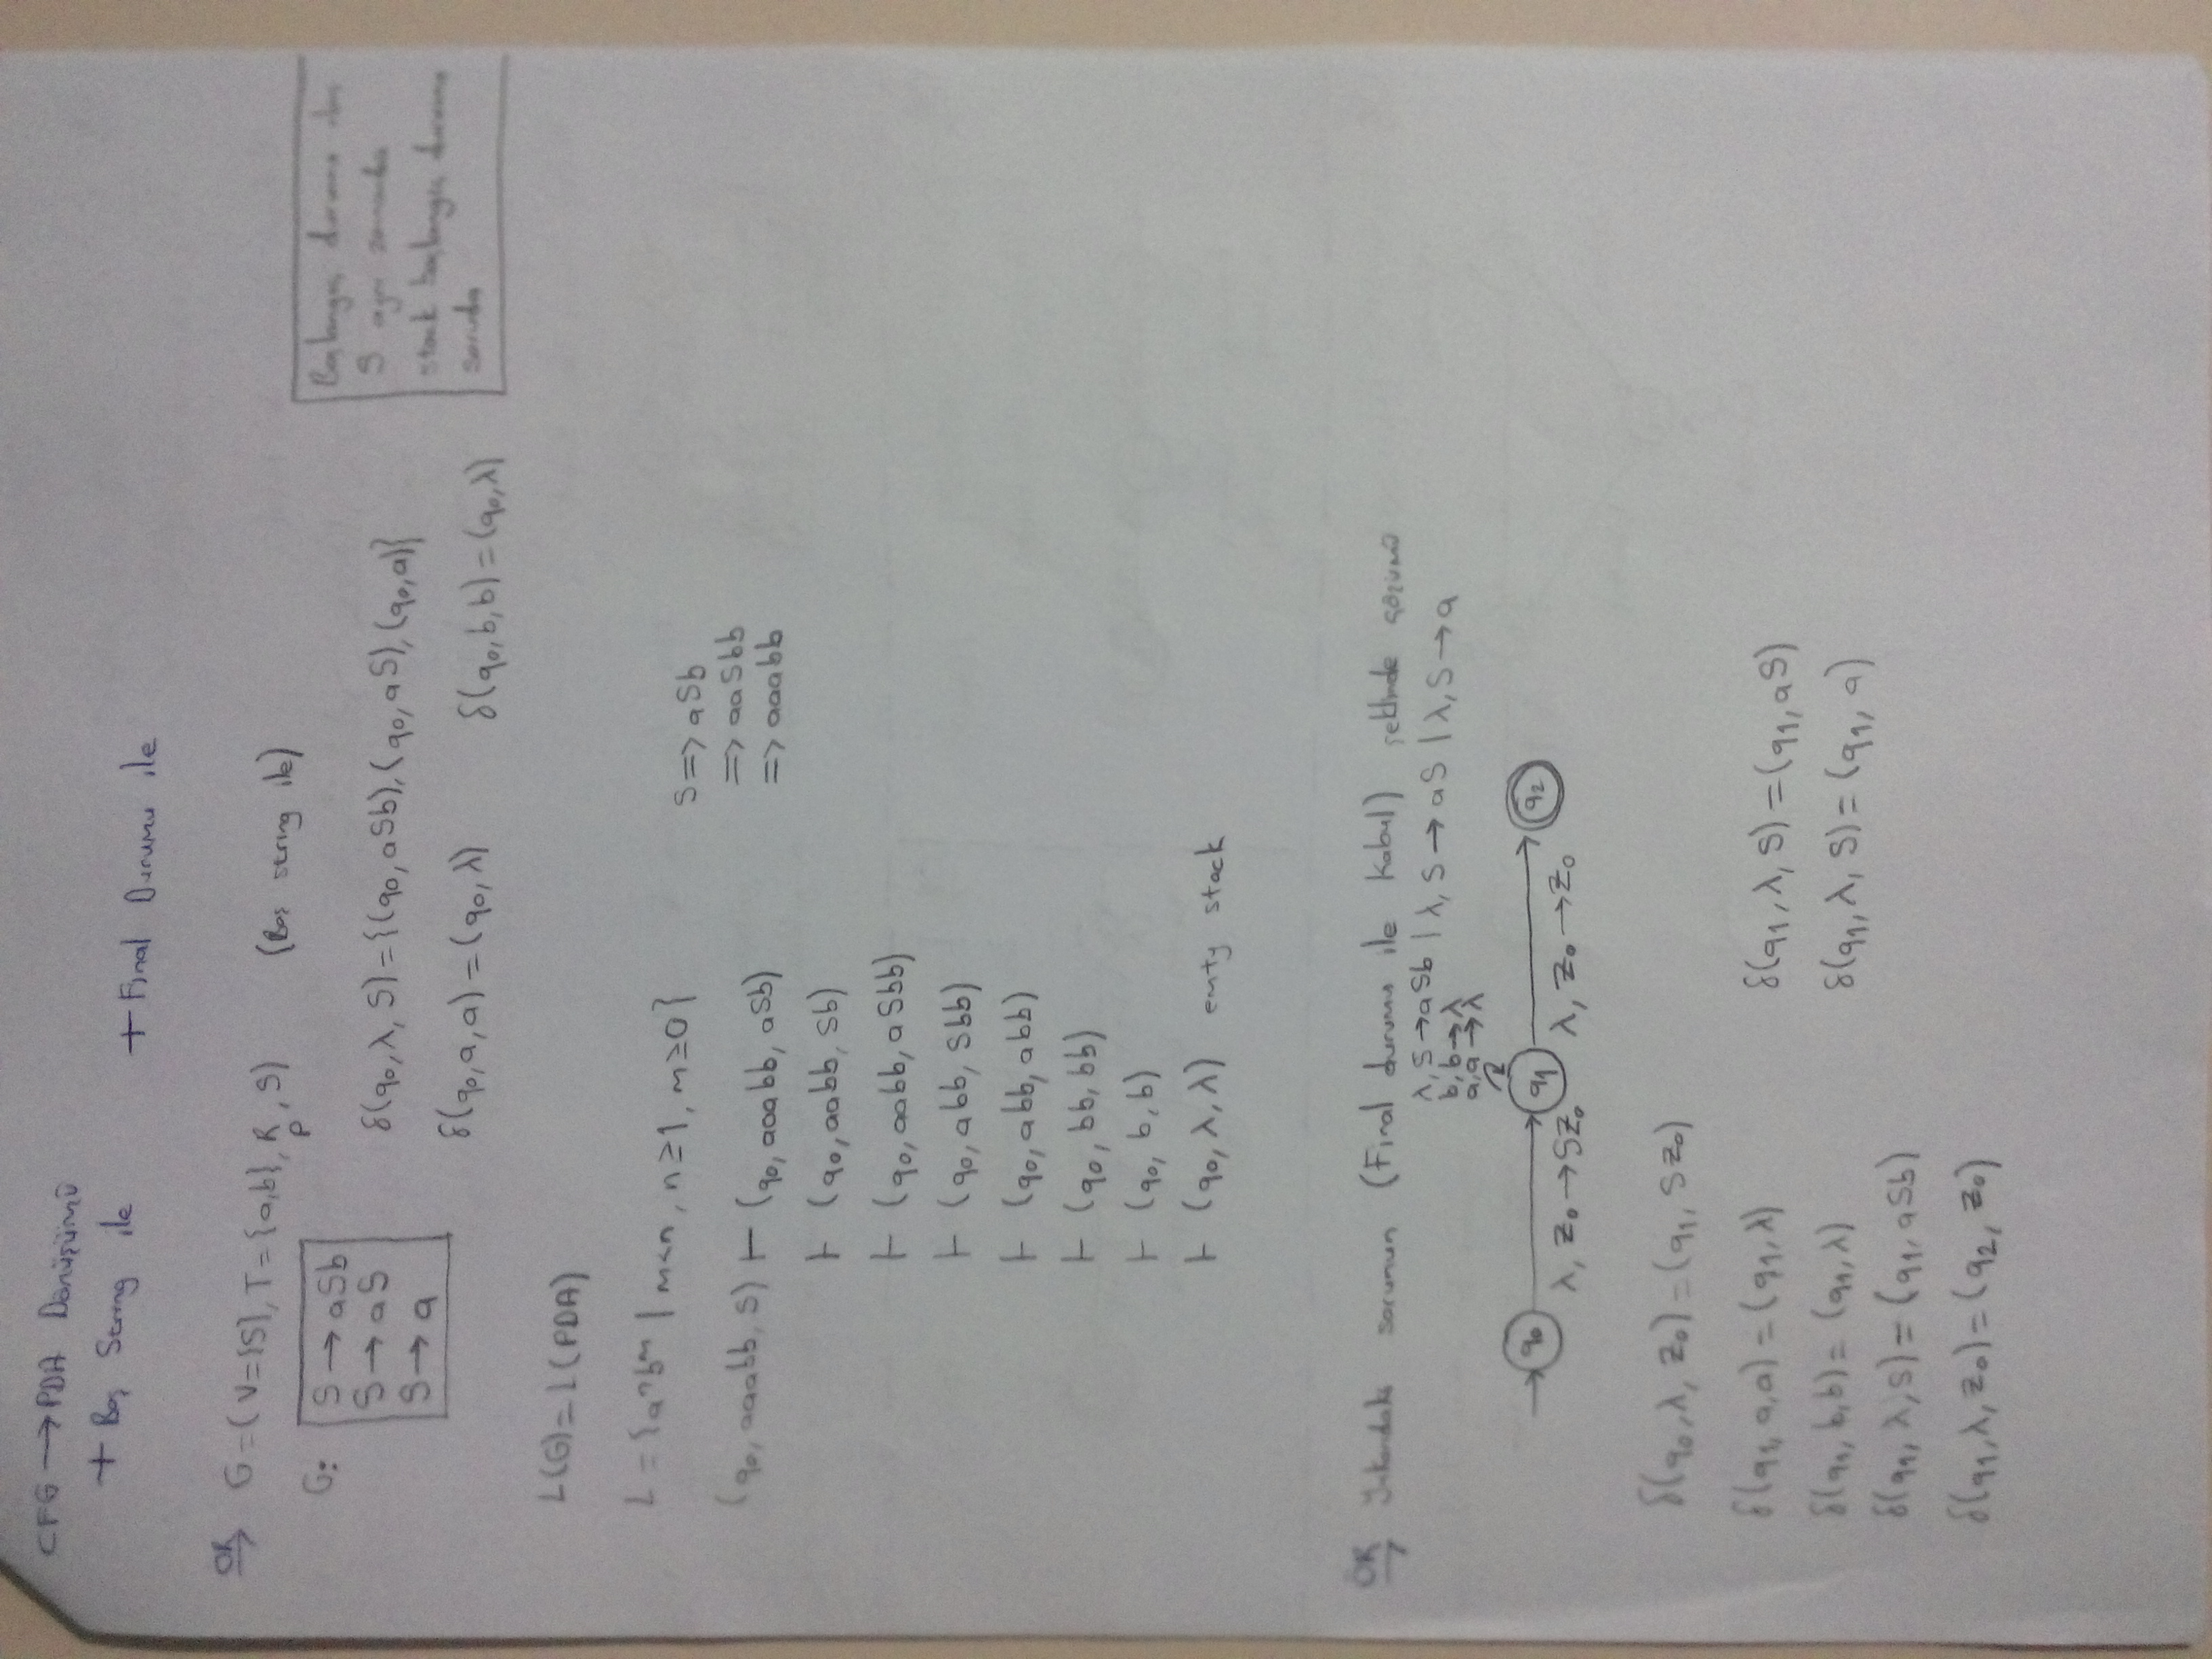 CFG → PDA Dönüşümü
+ Boş String ile
+ Final Durumu ile
ÖR G = (V={S}, T={a,b}, R, S) (Boş string ile)
P
G: S → aSb
S → aS
S → a
δ(q0, λ, S) = {(q0, aSb), (q0, aS), (q0, a)}
δ(q0, a, a) = (q0, λ) δ(q0, b, b) = (q0, λ)
Başlangıç durumu olan
S aynı zamanda
stack başlangıç durumu
soruda
L(G) = L(PDA)
L = {aⁿbᵐ | m<n, n≥1, m≥0}
S => aSb
=> aaSbb
=> aaabb
(q0, aaabb, S) ⊢ (q0, aaabb, aSb)
⊢ (q0, aabb, Sb)
⊢ (q0, aabb, aSbb)
⊢ (q0, abb, Sbb)
⊢ (q0, abb, abb)
⊢ (q0, bb, bb)
⊢ (q0, b, b)
⊢ (q0, λ, λ) emty stack
ÖR Yukarıdaki sorunun (Final durumu ile Kabul) şeklinde çözümü
λ, S → aSb | λ, S → aS | λ, S → a
b, b → λ
a, a → λ
q0 q1 q2
λ, Z0 → SZ0 λ, Z0 → Z0
δ(q0, λ, Z0) = (q1, SZ0)
δ(q1, a, a) = (q1, λ) δ(q1, λ, S) = (q1, aS)
δ(q1, b, b) = (q1, λ) δ(q1, λ, S) = (q1, a)
δ(q1, λ, S) = (q1, aSb)
δ(q1, λ, Z0) = (q2, Z0)